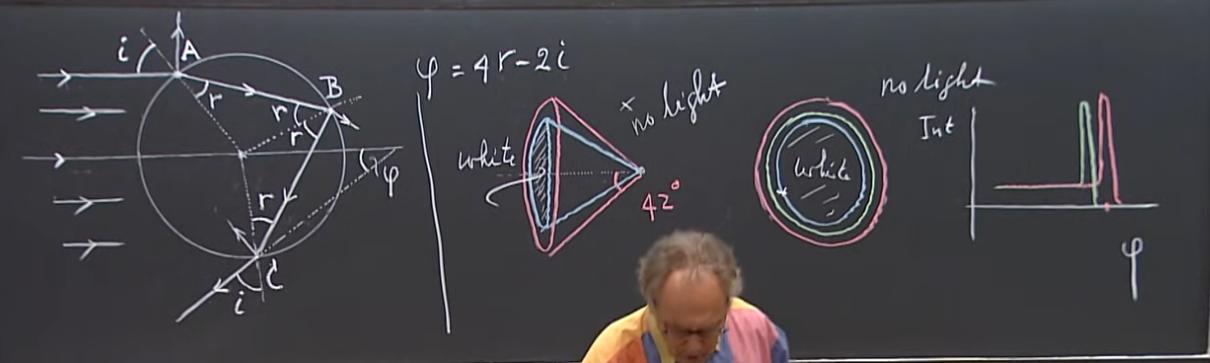 i
A
r
B
r
r
r
φ
i
C
φ = 4r - 2i
white
no light
42°
white
no light
Int
φ